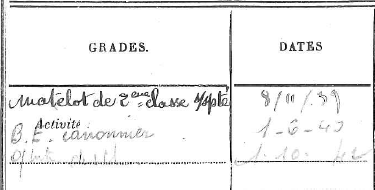 GRADES. DATES
Matelot de 2ème classe 8/11/39
Activité
B.E. canonnier 1-6-40
1.10.42